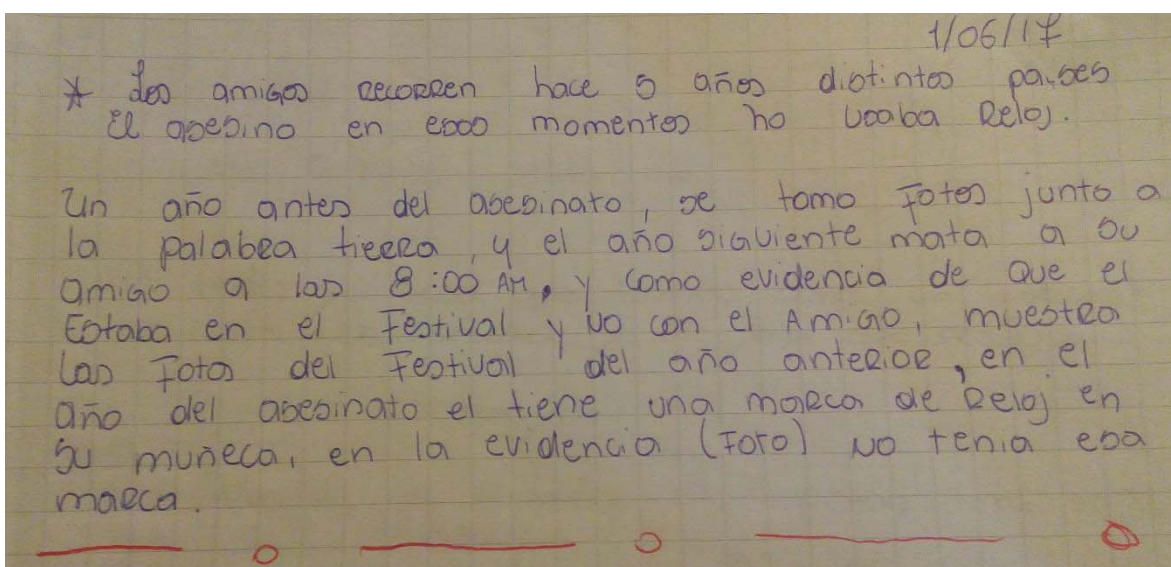 1/06/17
* Los amigos recorren hace 5 años distintos paises
El asesino en esos momentos no usaba Reloj.
Un año antes del asesinato, se tomo Fotos junto a
la palabra tierra, y el año siguiente mata a su
amigo a las 8:00 AM, y como evidencia de que el
Estaba en el Festival y No con el Amigo, muestra
las Fotos del Festival del año anterior, en el
año del asesinato el tiene una marca de Reloj en
su muñeca, en la evidencia (Foto) No tenia esa
marca.